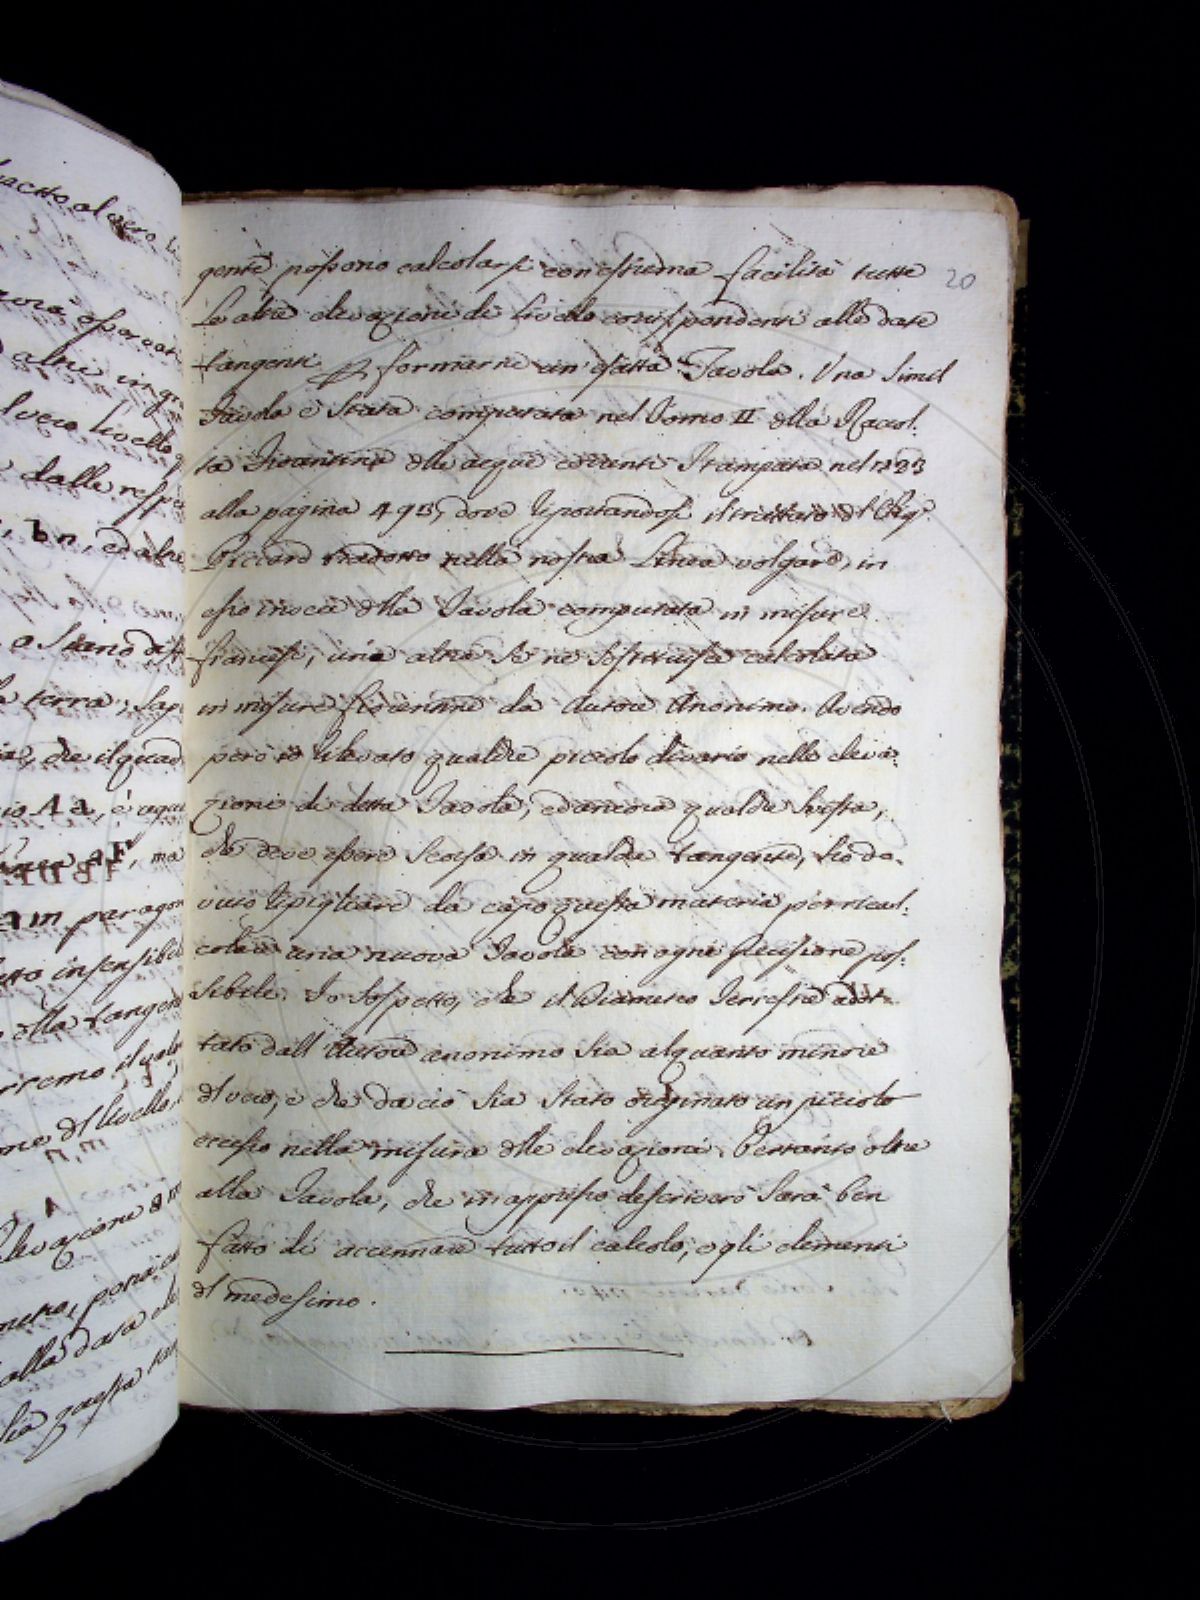 20
gente possono calcolarsi con estrema facilità tutte
le altre elevazioni di livello corrispondenti alle date
tangenti, e formarne un' esatta Tavola. Una simil
Tavola è stata computata nel Tomo II della Raccol:
ta Fiorentina delle acque correnti stampata nel 1723
alla pagina 493, dove riportandosi il trattato del
Piccard tradotto nella nostra Linea volgare, in
esso invece della Tavola computata in misure
francesi, una altra se ne sostituisce calcolata
in misure fiorentine da Autore Anonimo. Avendo
però io rilevato qualche picciolo divario nelle eleva:
zioni di detta Tavola, ed ancora qualche svista,
che deve essere scorsa in qualche tangente, ho do:
vuto ripigliare da capo questa materia per rical:
colare una nuova Tavola con ogni precisione pos:
sibile. Io sospetto, che il Diametro Terrestre adot:
tato dall' Autore anonimo sia alquanto minore
del vero, e che da ciò sia stato originato un picciolo
eccesso nella misura delle elevazioni. Pertanto oltre
alla Tavola, che in appresso descriverò sarà ben
fatto di accennare tutto il calcolo, e gli elementi
del medesimo.